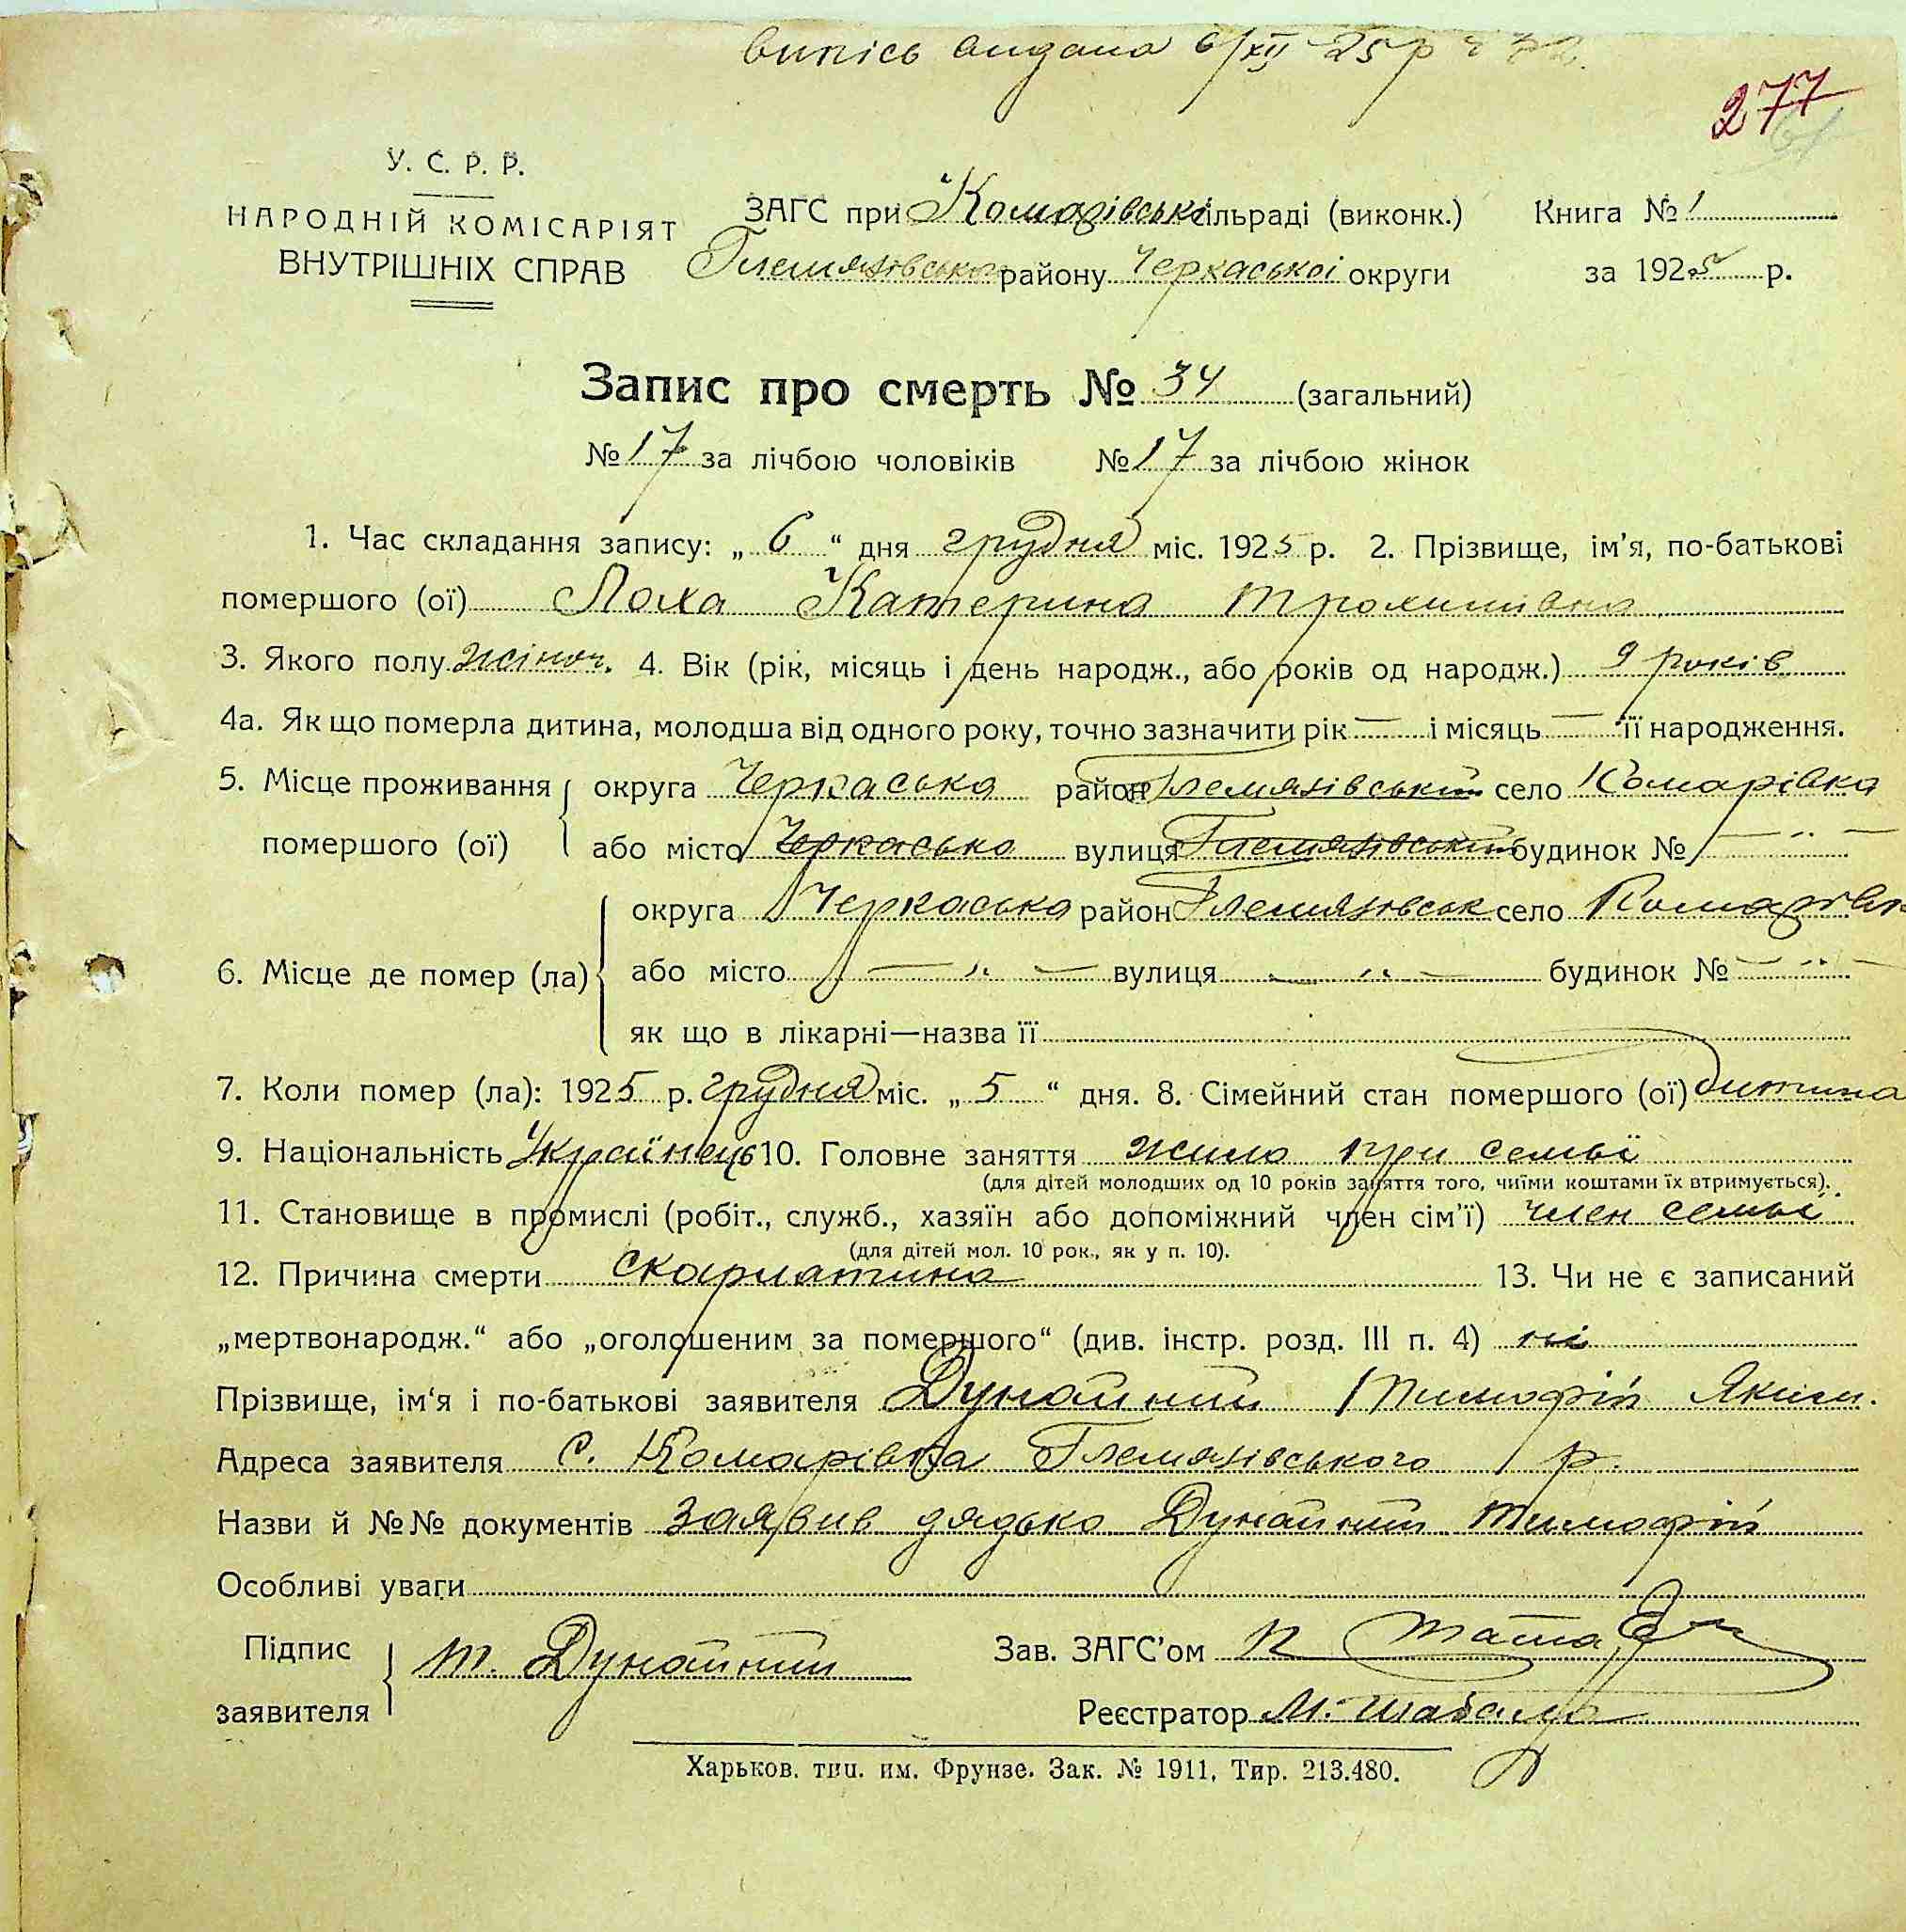 випісь видана 6/XII 25 р
277
У. С. Р. Р.
НАРОДНІЙ КОМІСАРІЯТ
ВНУТРІШНІХ СПРАВ
ЗАГС при Комарівські сільраді (виконк.) Книга № 1
Глемязівського району Черкаської округи за 1925 р.
Запис про смерть № 34 (загальний)
№ 17 за лічбою чоловіків № 17 за лічбою жінок
1. Час складання запису: „ 6 “ дня грудня міс. 1925 р. 2. Прізвище, ім'я, по-батькові
помершого (ої) Лоха Катерина Трохимівна
3. Якого полу жіноч. 4. Вік (рік, місяць і день народж., або років од народж.) 9 років
4а. Як що померла дитина, молодша від одного року, точно зазначити рік — і місяць — її народження.
5. Місце проживання округа Черкаська район Глемязівський село Комарівка
помершого (ої) або місто Черкасько вулиця Глемязівський будинок № — „ —
округа Черкаська район Глемязівськ село Комарівк
6. Місце де помер (ла) або місто — „ — вулиця — „ — будинок № — „ —
як що в лікарні—назва її
7. Коли помер (ла): 1925 р. грудня міс. „ 5 “ дня. 8. Сімейний стан помершого (ої) дитина
9. Національність Українець 10. Головне заняття жила при семьї
(для дітей молодших од 10 років заняття того, чиїми коштами їх втримується).
11. Становище в промислі (робіт., служб., хазяїн або допоміжний член сім'ї) член семьї
(для дітей мол. 10 рок., як у п. 10).
12. Причина смерти скарлатина 13. Чи не є записаний
„мертвонародж.“ або „оголошеним за помершого“ (див. інстр. розд. III п. 4) ні
Прізвище, ім'я і по-батькові заявителя Дунайний Тимофій Яким.
Адреса заявителя с. Комарівка Глемязівського р.
Назви й №№ документів заявив дядько Дунайний Тимофій
Особливі уваги
Підпис
заявителя
Т. Дунайний
Зав. ЗАГС'ом П
Реєстратор М. Шабала
Харьков. тип. им. Фрунзе. Зак. № 1911, Тир. 213.480.